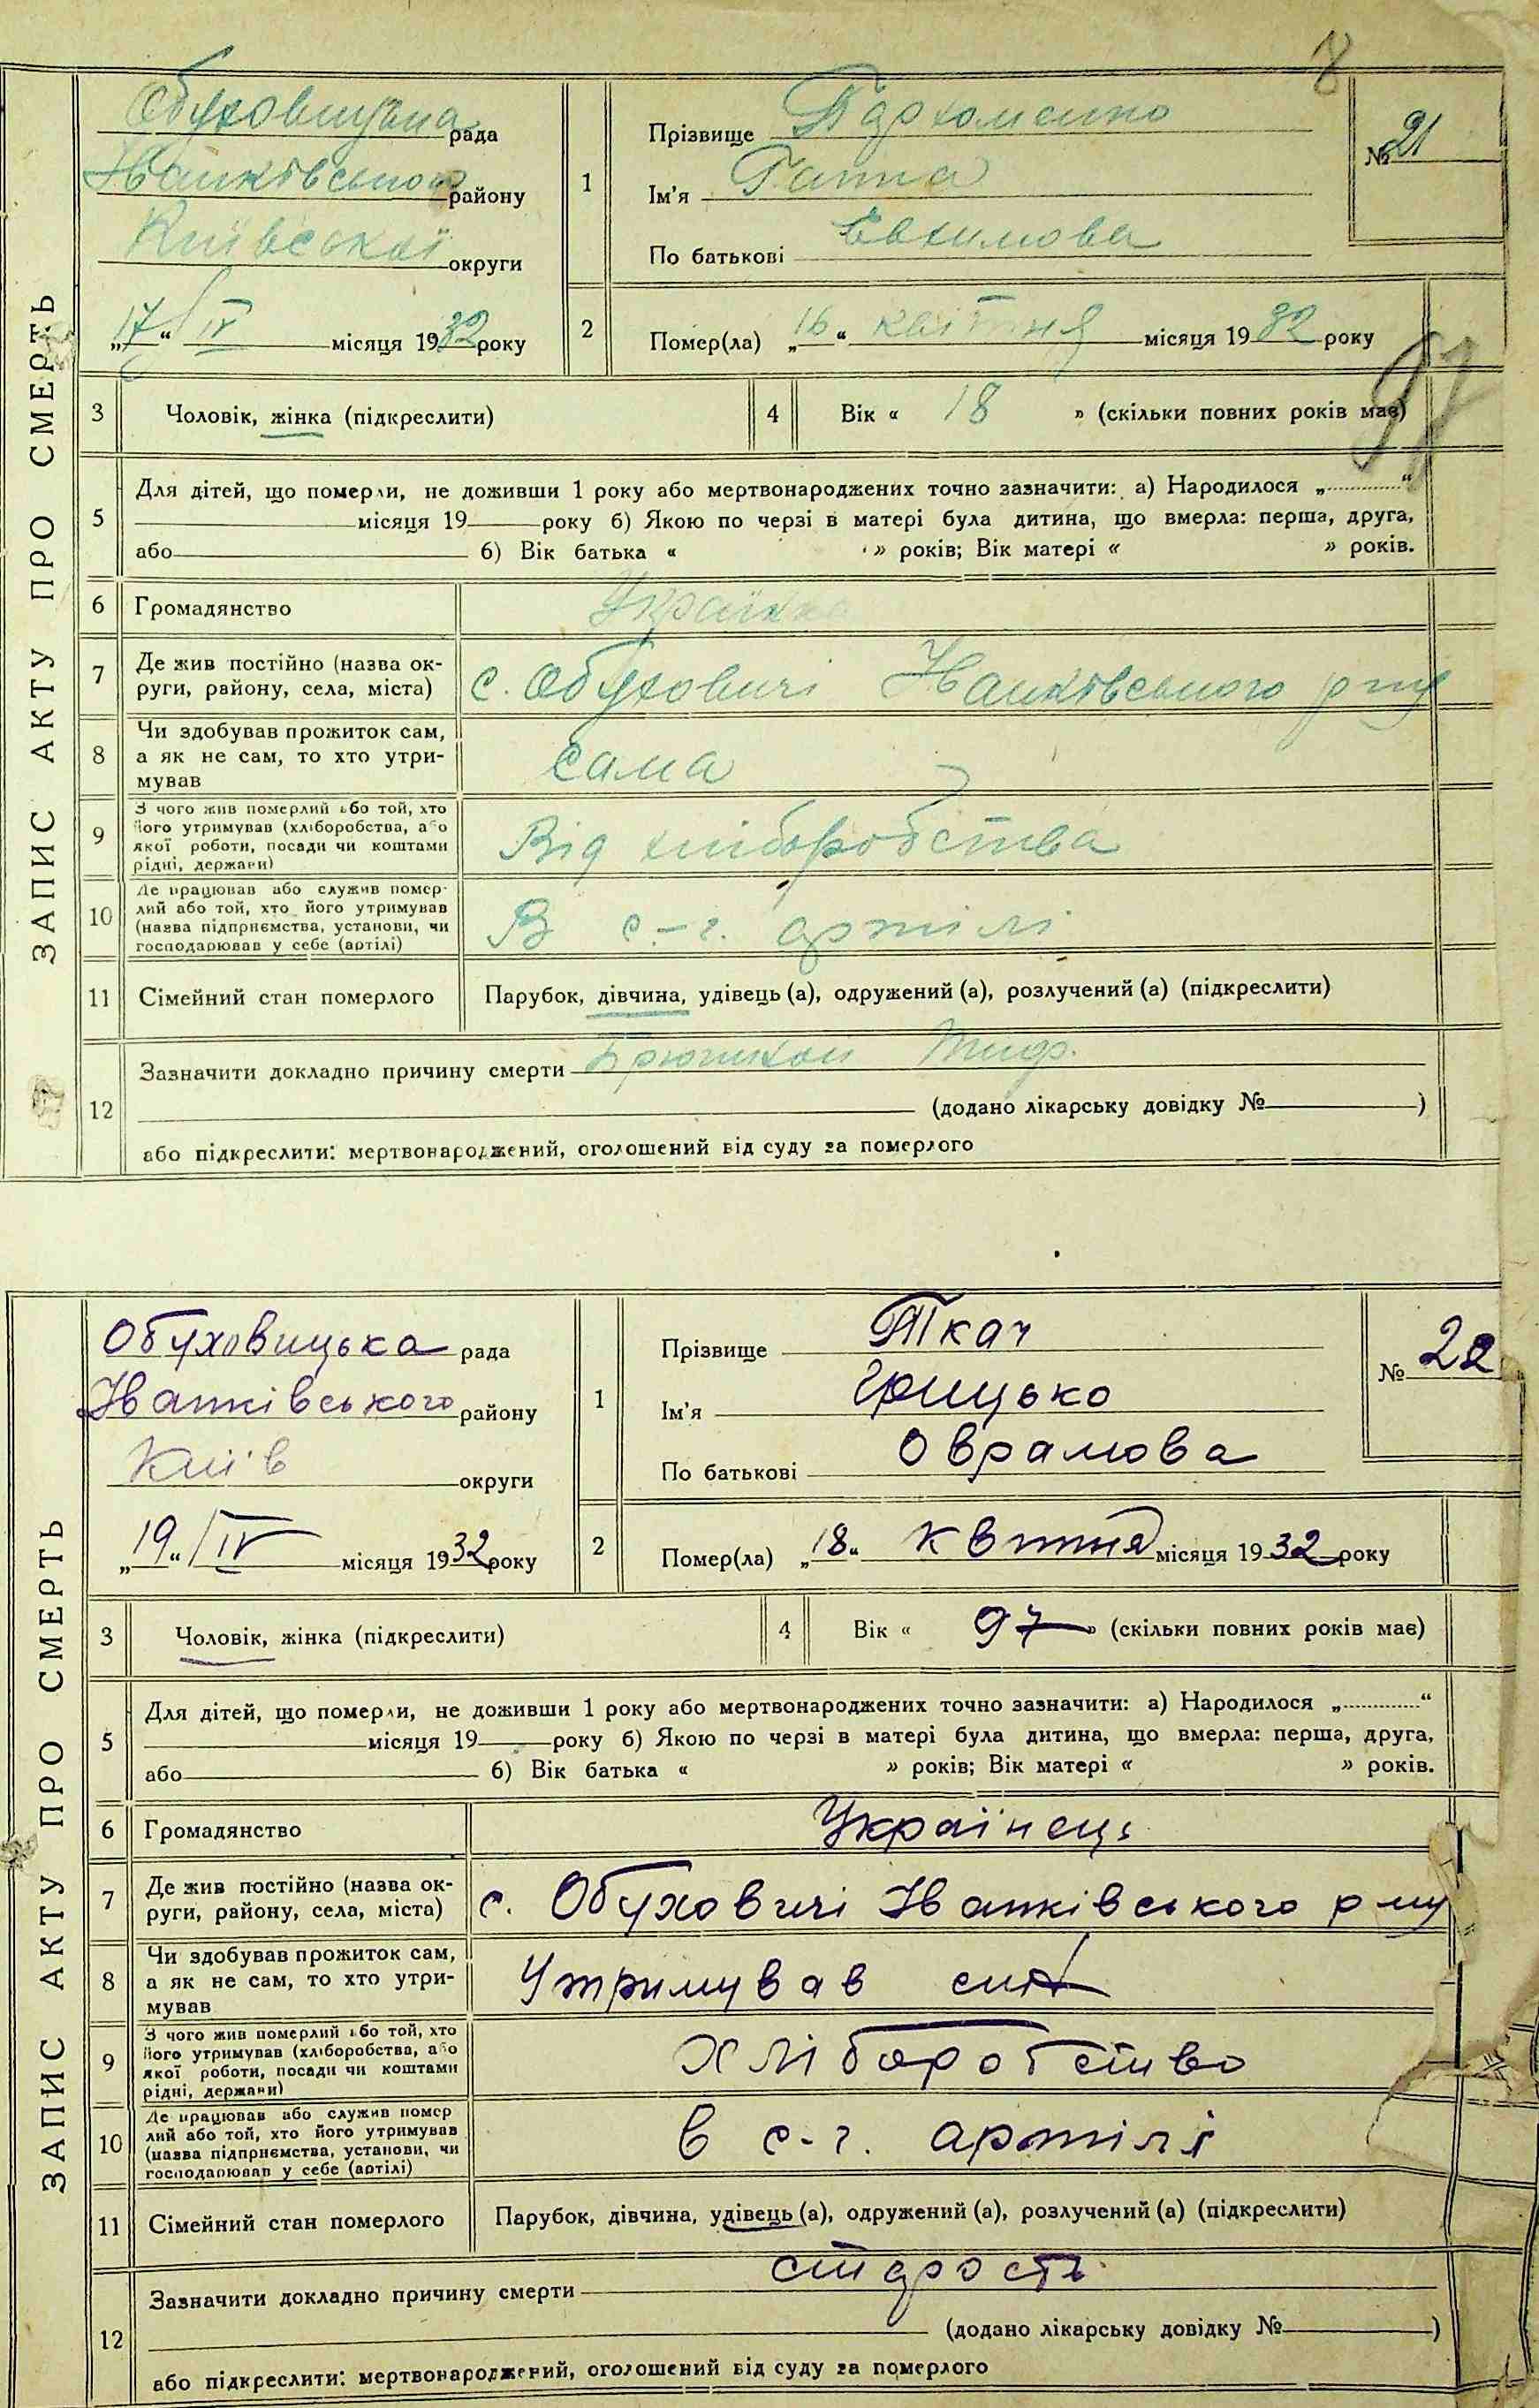 ЗАПИС АКТУ ПРО СМЕРТЬ
Обуховицька рада
Іванківського району
Київської округи
„17“ IV місяця 1932 року
1
Прізвище Пархоменко
Ім'я Ганна
По батькові Евхимова
№ 21
2
Помер(ла) „16“ квітня місяця 1932 року
97
3 Чоловік, жінка (підкреслити)
4 Вік « 18 » (скільки повних років має)
5
Для дітей, що померли, не доживши 1 року або мертвонароджених точно зазначити: а) Народилося „ “
місяця 19 року б) Якою по черзі в матері була дитина, що вмерла: перша, друга,
або 6) Вік батька « » років; Вік матері « » років.
6 Громадянство Українка
7 Де жив постійно (назва ок-
руги, району, села, міста) с. Обуховичі Іванківського р-ну
8 Чи здобував прожиток сам,
а як не сам, то хто утри-
мував
сама
9 З чого жив померлий або той, хто
його утримував (хліборобства, або
якої роботи, посади чи коштами
рідні, держави)
Від хліборобства
10 Де працював або служив помер-
лий або той, хто його утримував
(назва підприємства, установи, чи
господарював у себе (артілі)
В с.-г. артілі
11 Сімейний стан померлого Парубок, дівчина, удівець (а), одружений (а), розлучений (а) (підкреслити)
12
Зазначити докладно причину смерти Брюшной Тиф.
(додано лікарську довідку № )
або підкреслити: мертвонароджений, оголошений від суду за померлого
ЗАПИС АКТУ ПРО СМЕРТЬ
Обуховицька рада
Іванківського району
Київ округи
„19“ IV місяця 1932 року
1
Прізвище Ткач
Ім'я Грицько
По батькові Оврамова
№ 22
2
Помер(ла) „18“ квітня місяця 1932 року
3 Чоловік, жінка (підкреслити)
4 Вік « 97 » (скільки повних років має)
5
Для дітей, що померли, не доживши 1 року або мертвонароджених точно зазначити: а) Народилося „ “
місяця 19 року б) Якою по черзі в матері була дитина, що вмерла: перша, друга,
або 6) Вік батька « » років; Вік матері « » років.
6 Громадянство Українець
7 Де жив постійно (назва ок-
руги, району, села, міста) с. Обуховичі Іванківського р-ну
8 Чи здобував прожиток сам,
а як не сам, то хто утри-
мував
Утримував син
9 З чого жив померлий або той, хто
його утримував (хліборобства, або
якої роботи, посади чи коштами
рідні, держави)
Хліборобство
10 Де працював або служив помер
лий або той, хто його утримував
(назва підприємства, установи, чи
господарював у себе (артілі)
в с.-г. артілі
11 Сімейний стан померлого Парубок, дівчина, удівець (а), одружений (а), розлучений (а) (підкреслити)
12
Зазначити докладно причину смерти старость
(додано лікарську довідку № )
або підкреслити: мертвонароджений, оголошений від суду за померлого